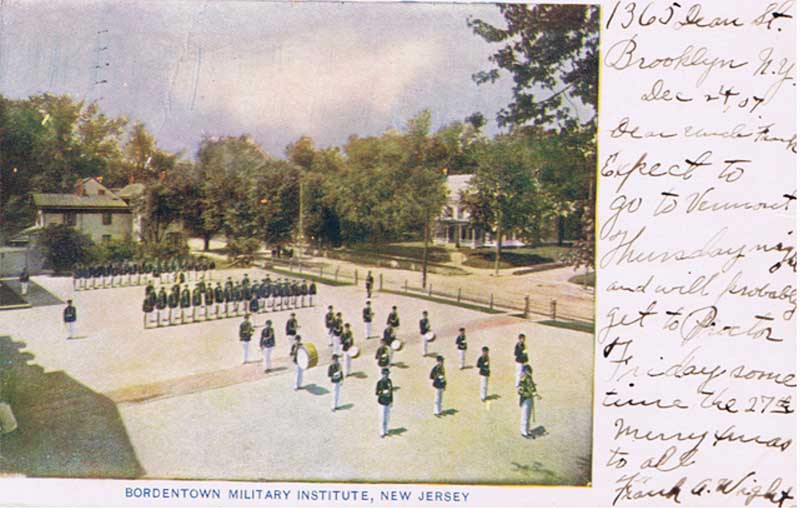 1365 Dean St.
Brooklyn N.Y.
Dec 24, 07
Dear Uncle Frank
Expect to
go to Vermont
Thursday night
and will probably
get to Proctor
Friday some
time the 27th
Merry Xmas
to all
Frank A. Wight
BORDENTOWN MILITARY INSTITUTE, NEW JERSEY